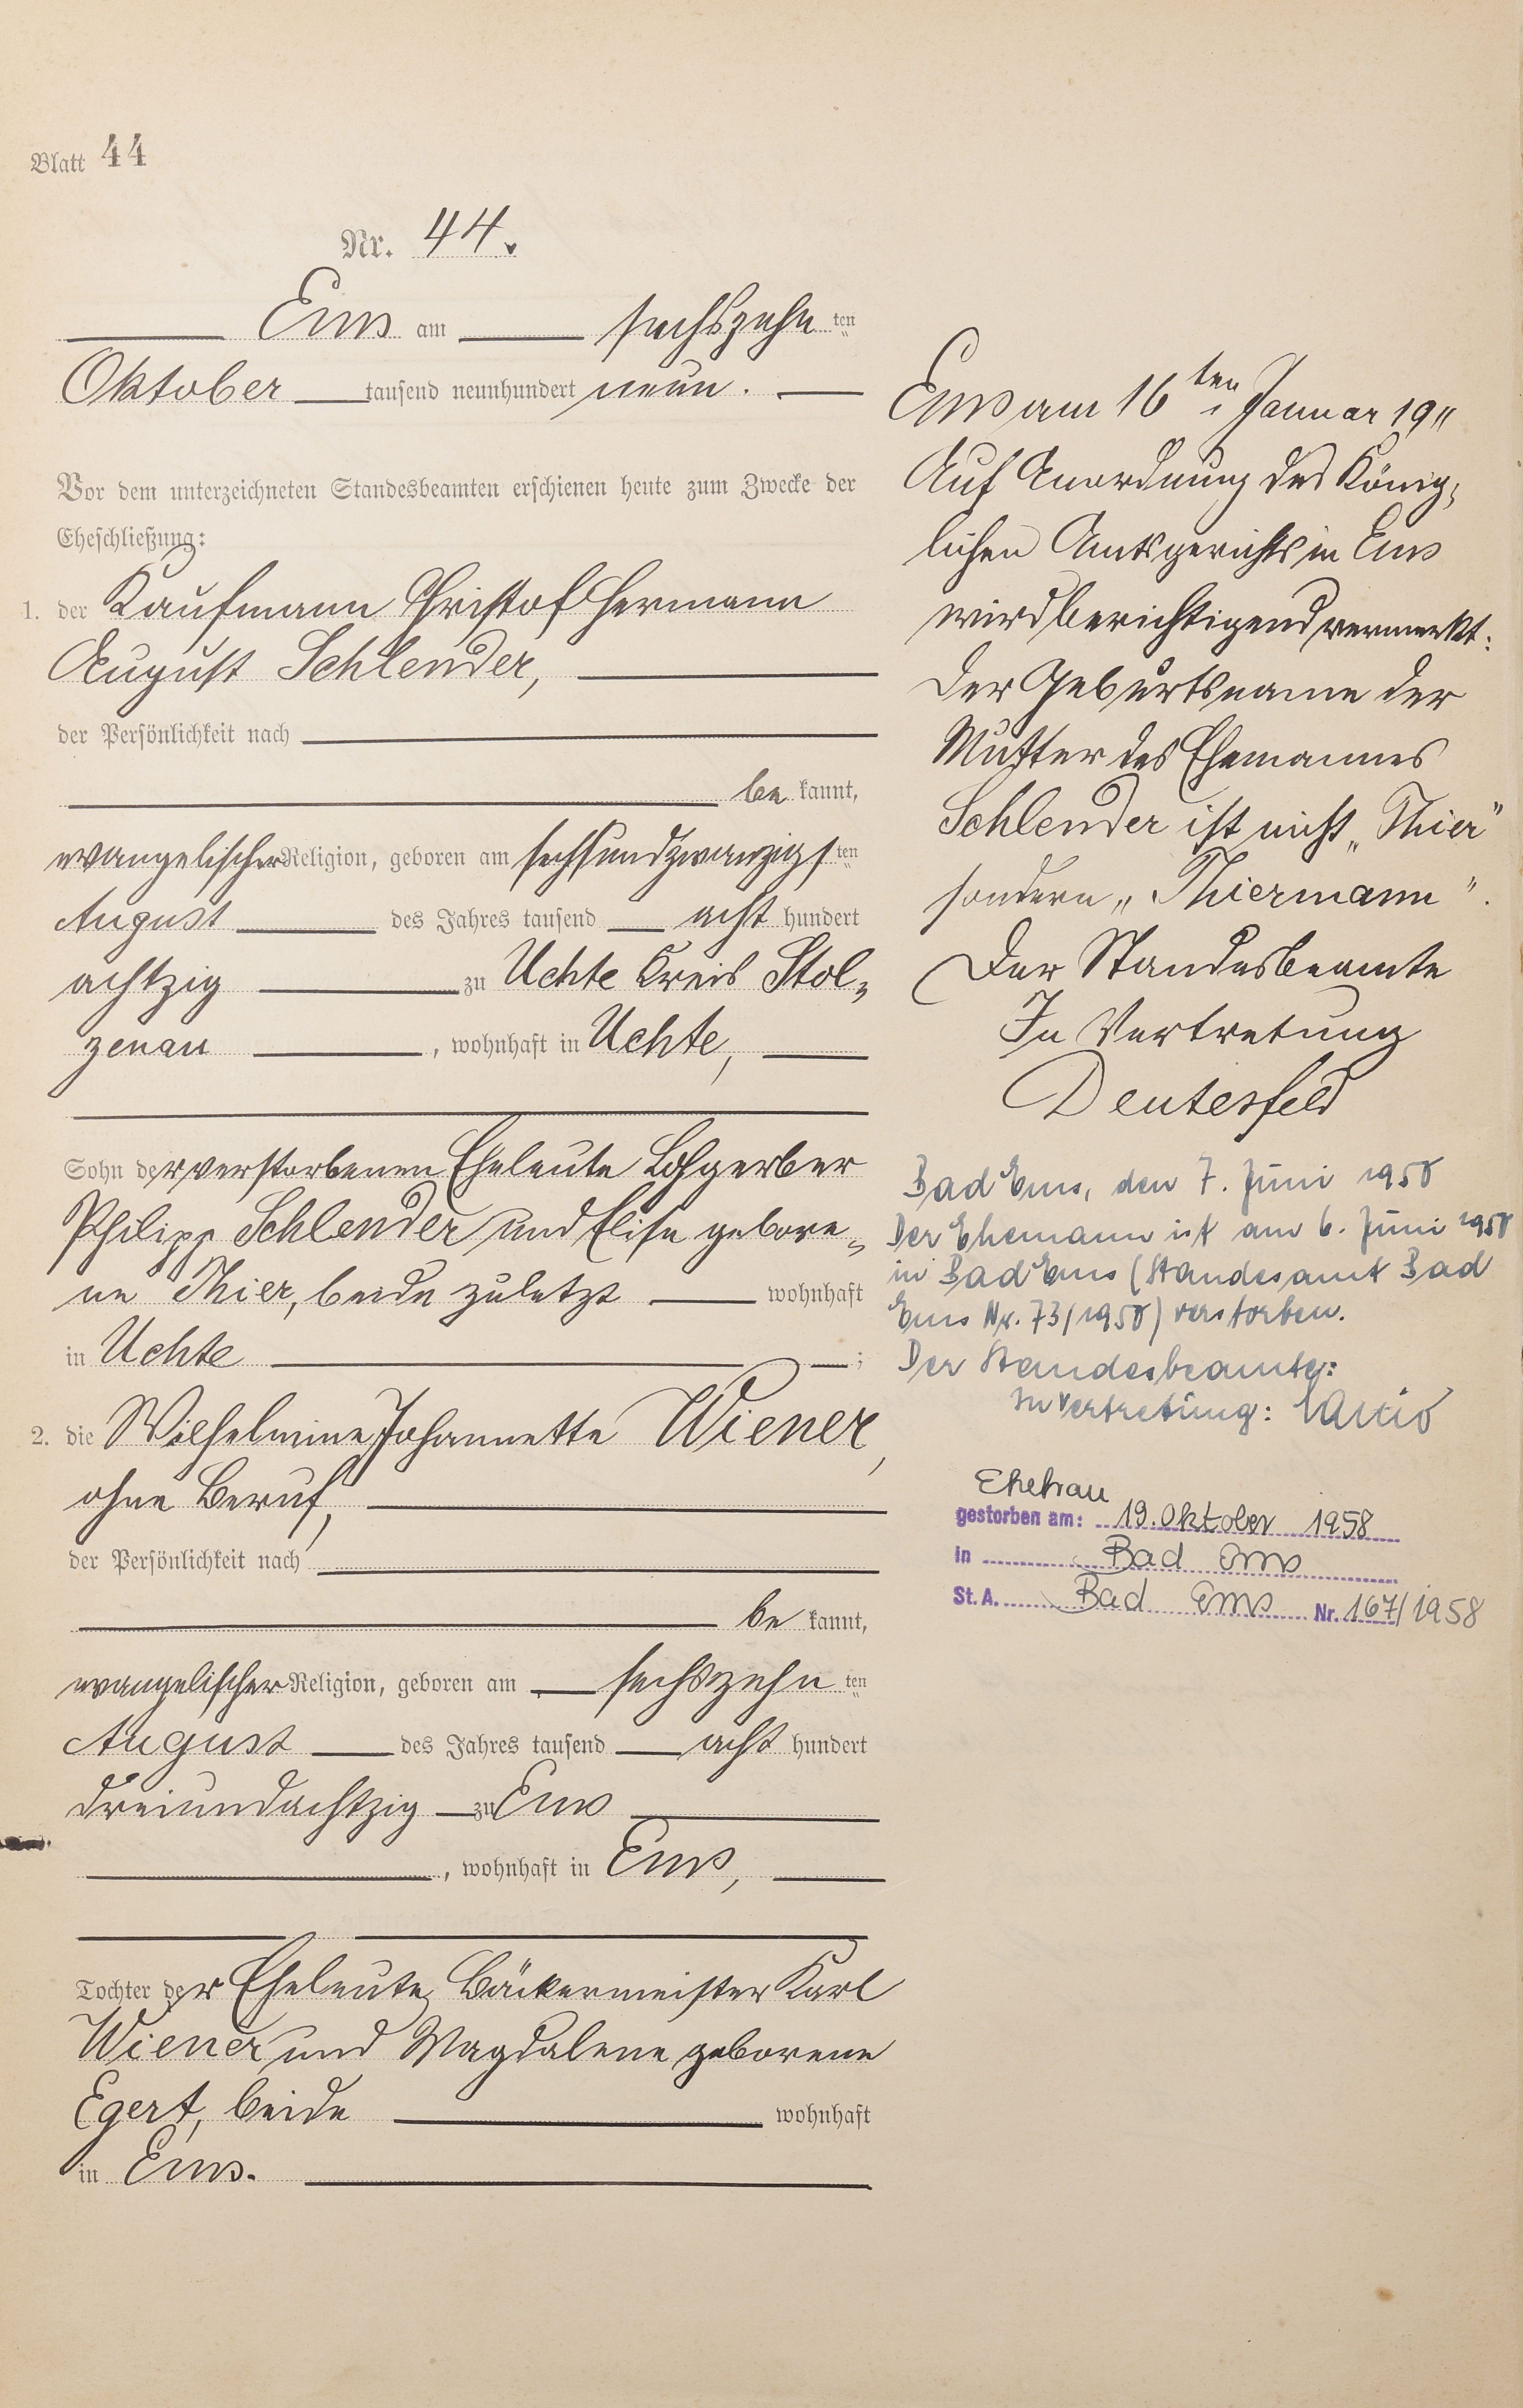 Blatt 44
Nr. 44.
Ems am sechszehnten
Oktober tausend neunhundert neun.
Vor dem unterzeichneten Standesbeamten erschienen heute zum Zwecke der
Eheschließung:
1. der Kaufmann Christof Hermann
August Schlender,
der Persönlichkeit nach
bekannt,
evangelischer Religion, geboren am sechsundzwanzigsten
August des Jahres tausend achthundert
achtzig zu Uchte Kreis Stol-
zenau, wohnhaft in Uchte,
Sohn der verstorbenen Eheleute Lohgerber
Philipp Schlender und Elise gebore-
ne Thier, beide zuletzt wohnhaft
in Uchte;
2. die Wilhelmine Johannette Wiener,
ohne Beruf,
der Persönlichkeit nach
bekannt,
evangelischer Religion, geboren am sechszehnten
August des Jahres tausend achthundert
dreiundachtzig zu Ems
, wohnhaft in Ems,
Tochter der Eheleute Bäckermeister Karl
Wiener und Magdalene geborene
Egert, beide wohnhaft
in Ems.
Ems am 16ten Januar 1911
Auf Anordnung des König-
lichen Amtsgerichts in Ems
wird berichtigend vermerkt:
Der Geburtsname der
Mutter des Ehemannes
Schlender ist nicht „Thier"
sondern „Thiermann".
Der Standesbeamte
In Vertretung
Deutesfeld
Bad Ems, den 7. Juni 1958
Der Ehemann ist am 6. Juni 1958
in Bad Ems (Standesamt Bad
Ems Nr. 73/1958) verstorben.
Der Standesbeamte:
In Vertretung:
Ehefrau
gestorben am: 19. Oktober 1958
in Bad Ems
St. A. Bad Ems Nr. 167/1958